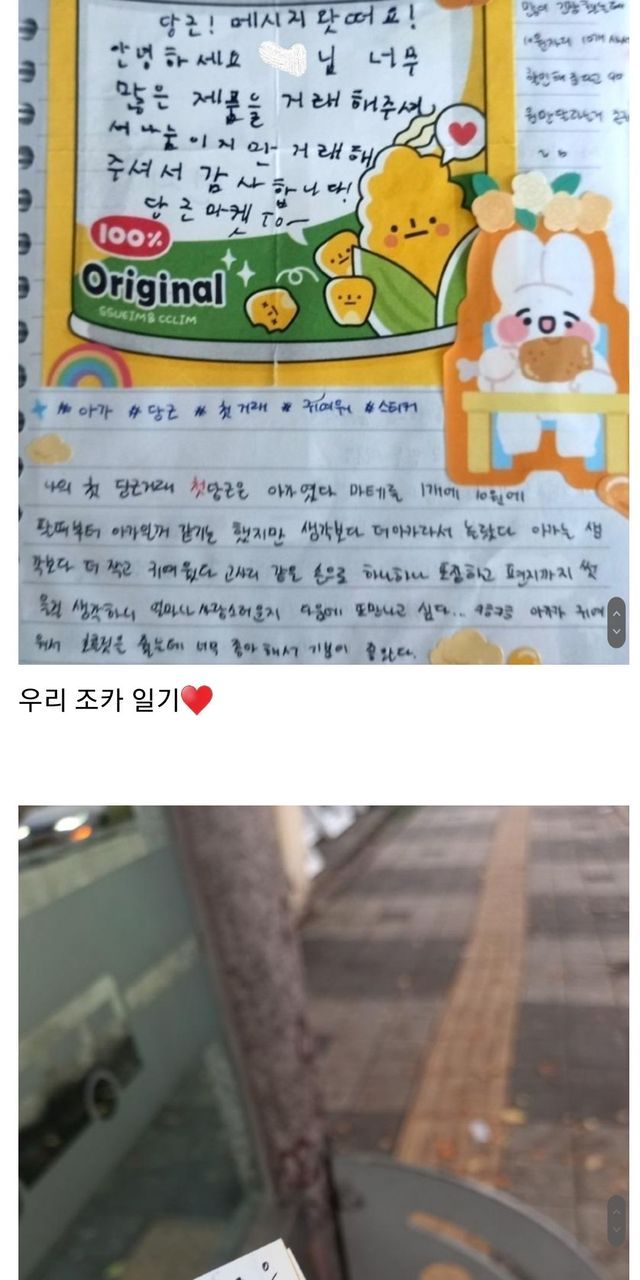 당근! 메시지 왓떠요!
안녕하세요 님 너무
많은 제품을 거래해주셔
서 나눔이지만 거래해
주셔서 감사합니다!
당근마켓
100%
Original
SSUEIM & CCLIM
# 아가 # 당근 # 첫거래 # 귀여워 #스티커
나의 첫 당근거래 첫당근은 아가였다 마테를 1개에 10원에
팔때부터 아가일거 같기는 했지만 생각보다 더아가라서 놀랐다 아가는 생
각보다 더 작고 귀여웠다 고사리 같은 손으로 하나하나 포장하고 편지까지 썼
을걸 생각하니 얼마나 사랑스러운지 다음에 또만나고 싶다... 아주가 귀여
워서 줬는데 너무 좋아해서 기분이 좋았다.
우리 조카 일기♥